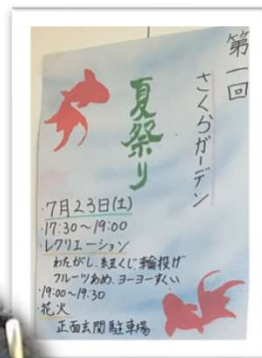 第一回
さくらガーデン
夏祭り
・7月23日(土)
・17:30～19:00
・レクリエーション
わたがし、紐くじ、輪投げ
フルーツあめ、ヨーヨーすくい
・19:00～19:30
・花火
正面玄関 駐車場